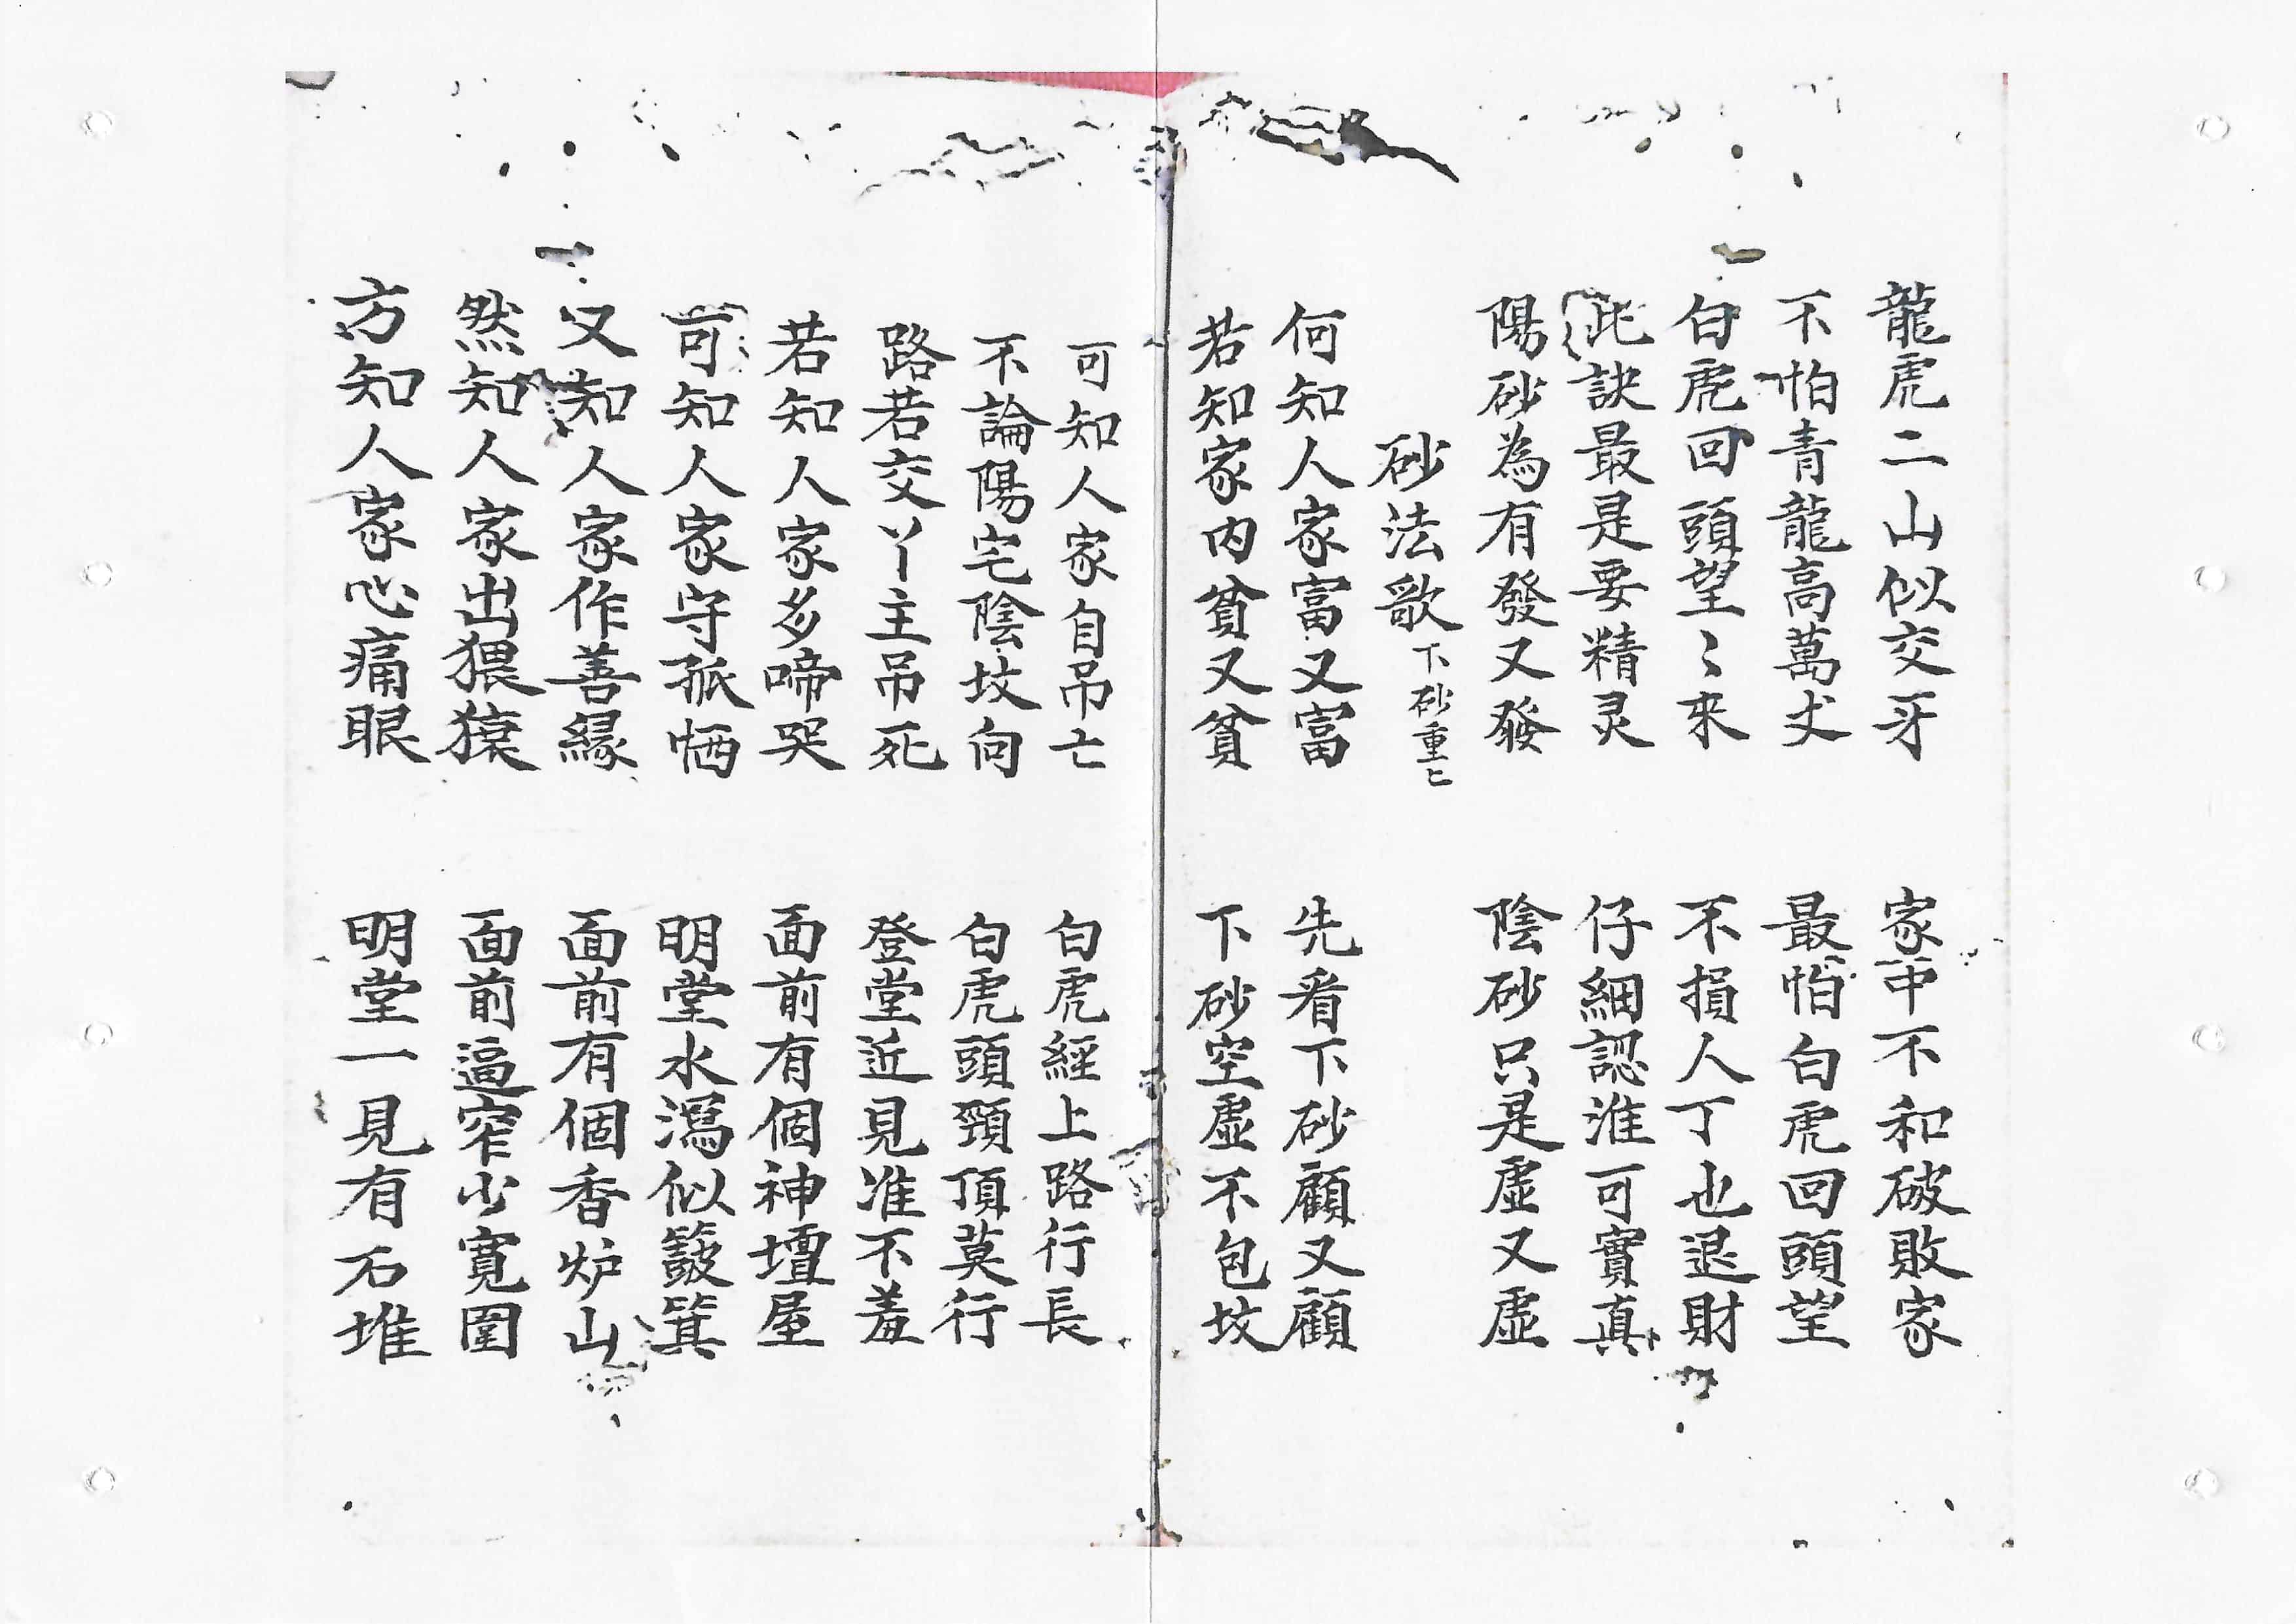 龍虎二山似交牙　家中不和破敗家
不怕青龍高萬丈　最怕白虎回頭望
白虎回頭望〻來　不損人丁也退財
此訣最是要精灵　仔細認准可實真
陽砂為有發又發　陰砂只是虛又虛
砂法歌 下砂重〻
何知人家富又富　先看下砂顧又顧
若知家内貧又貧　下砂空虛不包坟
可知人家自吊亡　白虎經上路行長
不論陽宅陰坟向　白虎頭頸頂莫行
路若交丫主吊死　登堂近見准不羞
若知人家多啼哭　面前有個神壇屋
可知人家守孤恓　明堂水瀉似簸箕
又知人家作善緣　面前有個香炉山
然知人家出猥猿　面前逼窄少寬圍
方知人家心痛眼　明堂一見有石堆